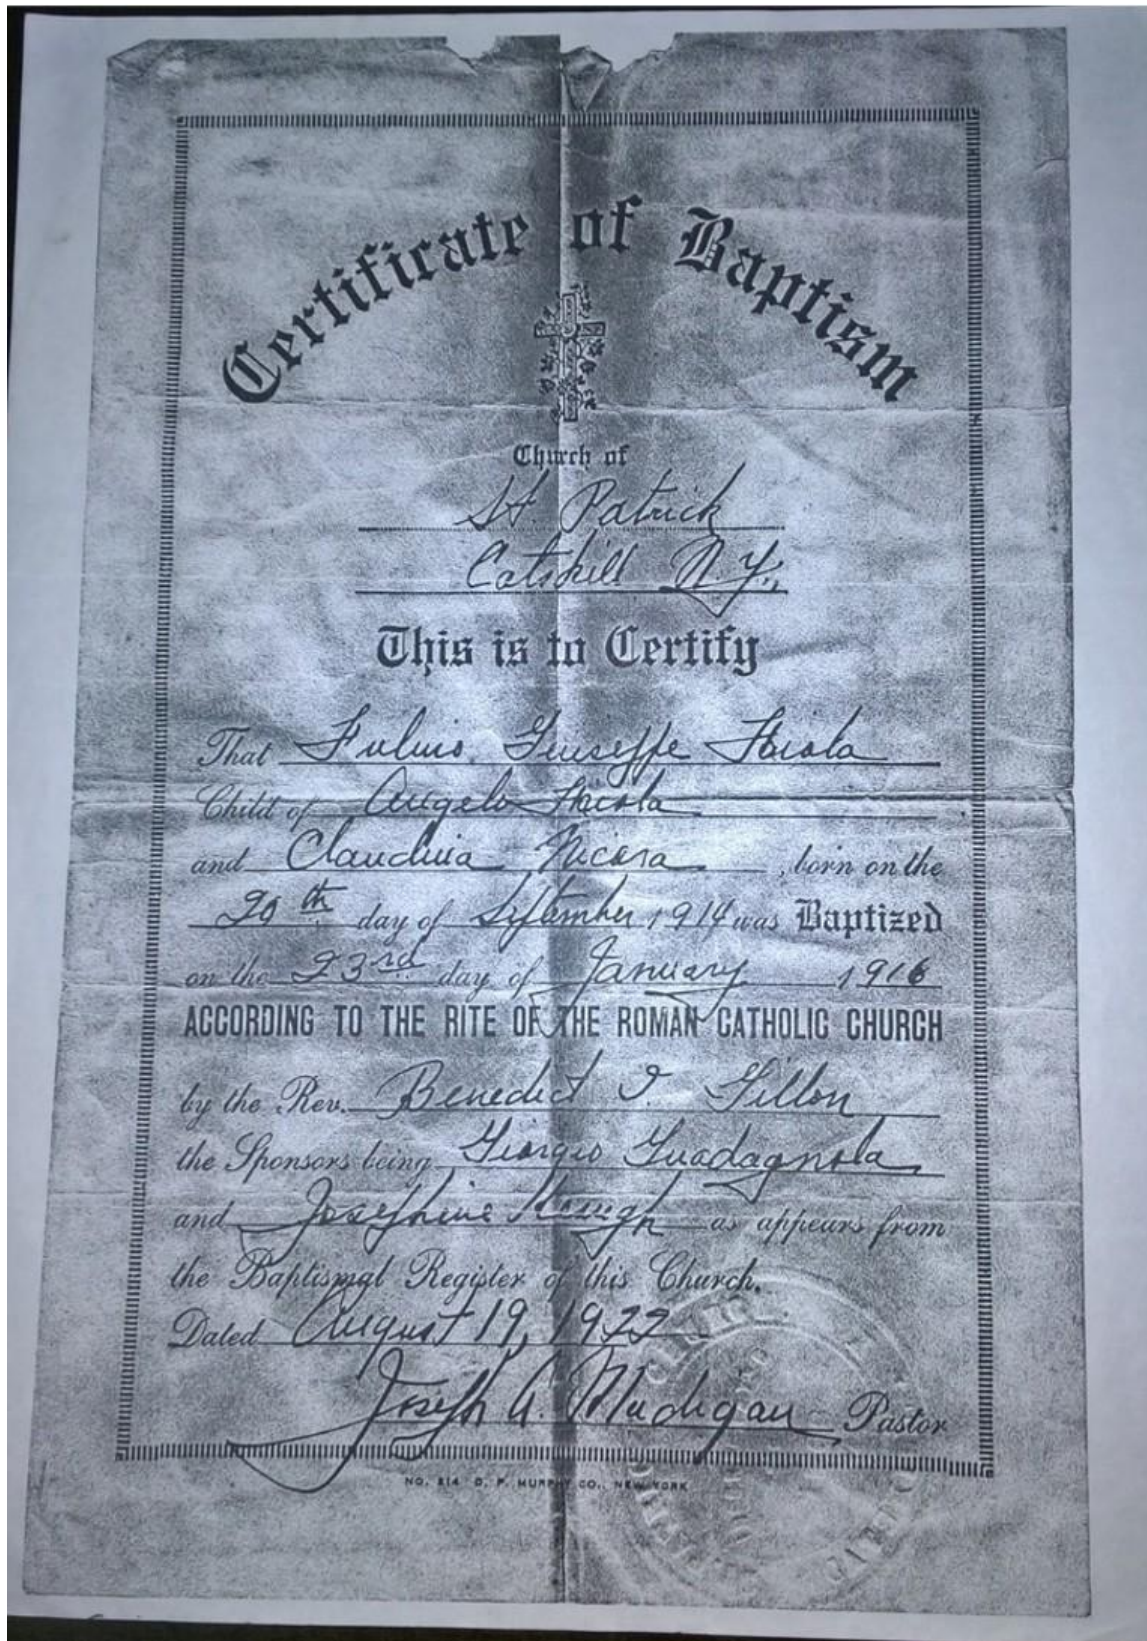 Certificate of Baptism
Church of
St. Patrick
Catskill N.Y.
This is to Certify
That Fulvio Giuseppe Faiola
Child of Angelo Faiola
and Claudina Nicosa, born on the
20th day of September 1914 was Baptized
on the 23rd day of January 1916
ACCORDING TO THE RITE OF THE ROMAN CATHOLIC CHURCH
by the Rev. Benedict I. Dillon
the Sponsors being Giorgio Guadagnola
and Josephine as appears from
the Baptismal Register of this Church.
Dated August 19, 1922
Joseph A. Madigan Pastor
NO. 214 D. P. MURPHY CO., NEW YORK